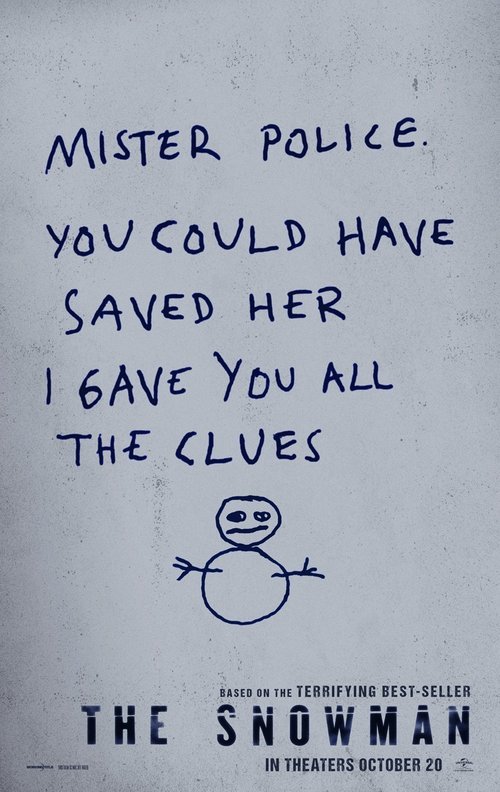 MISTER POLICE.
YOU COULD HAVE
SAVED HER
I GAVE YOU ALL
THE CLUES
BASED ON THE TERRIFYING BEST-SELLER
THE SNOWMAN
IN THEATERS OCTOBER 20